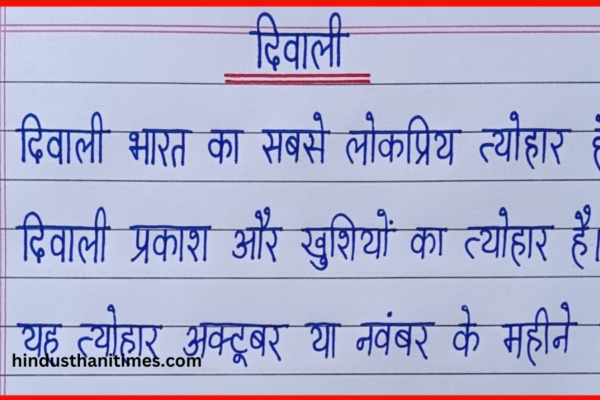 दिवाली
दिवाली भारत का सबसे लोकप्रिय त्योहार
दिवाली प्रकाश और खुशियों का त्योहार है।
यह त्योहार अक्टूबर या नवंबर के महीने
hindusthanitimes.com